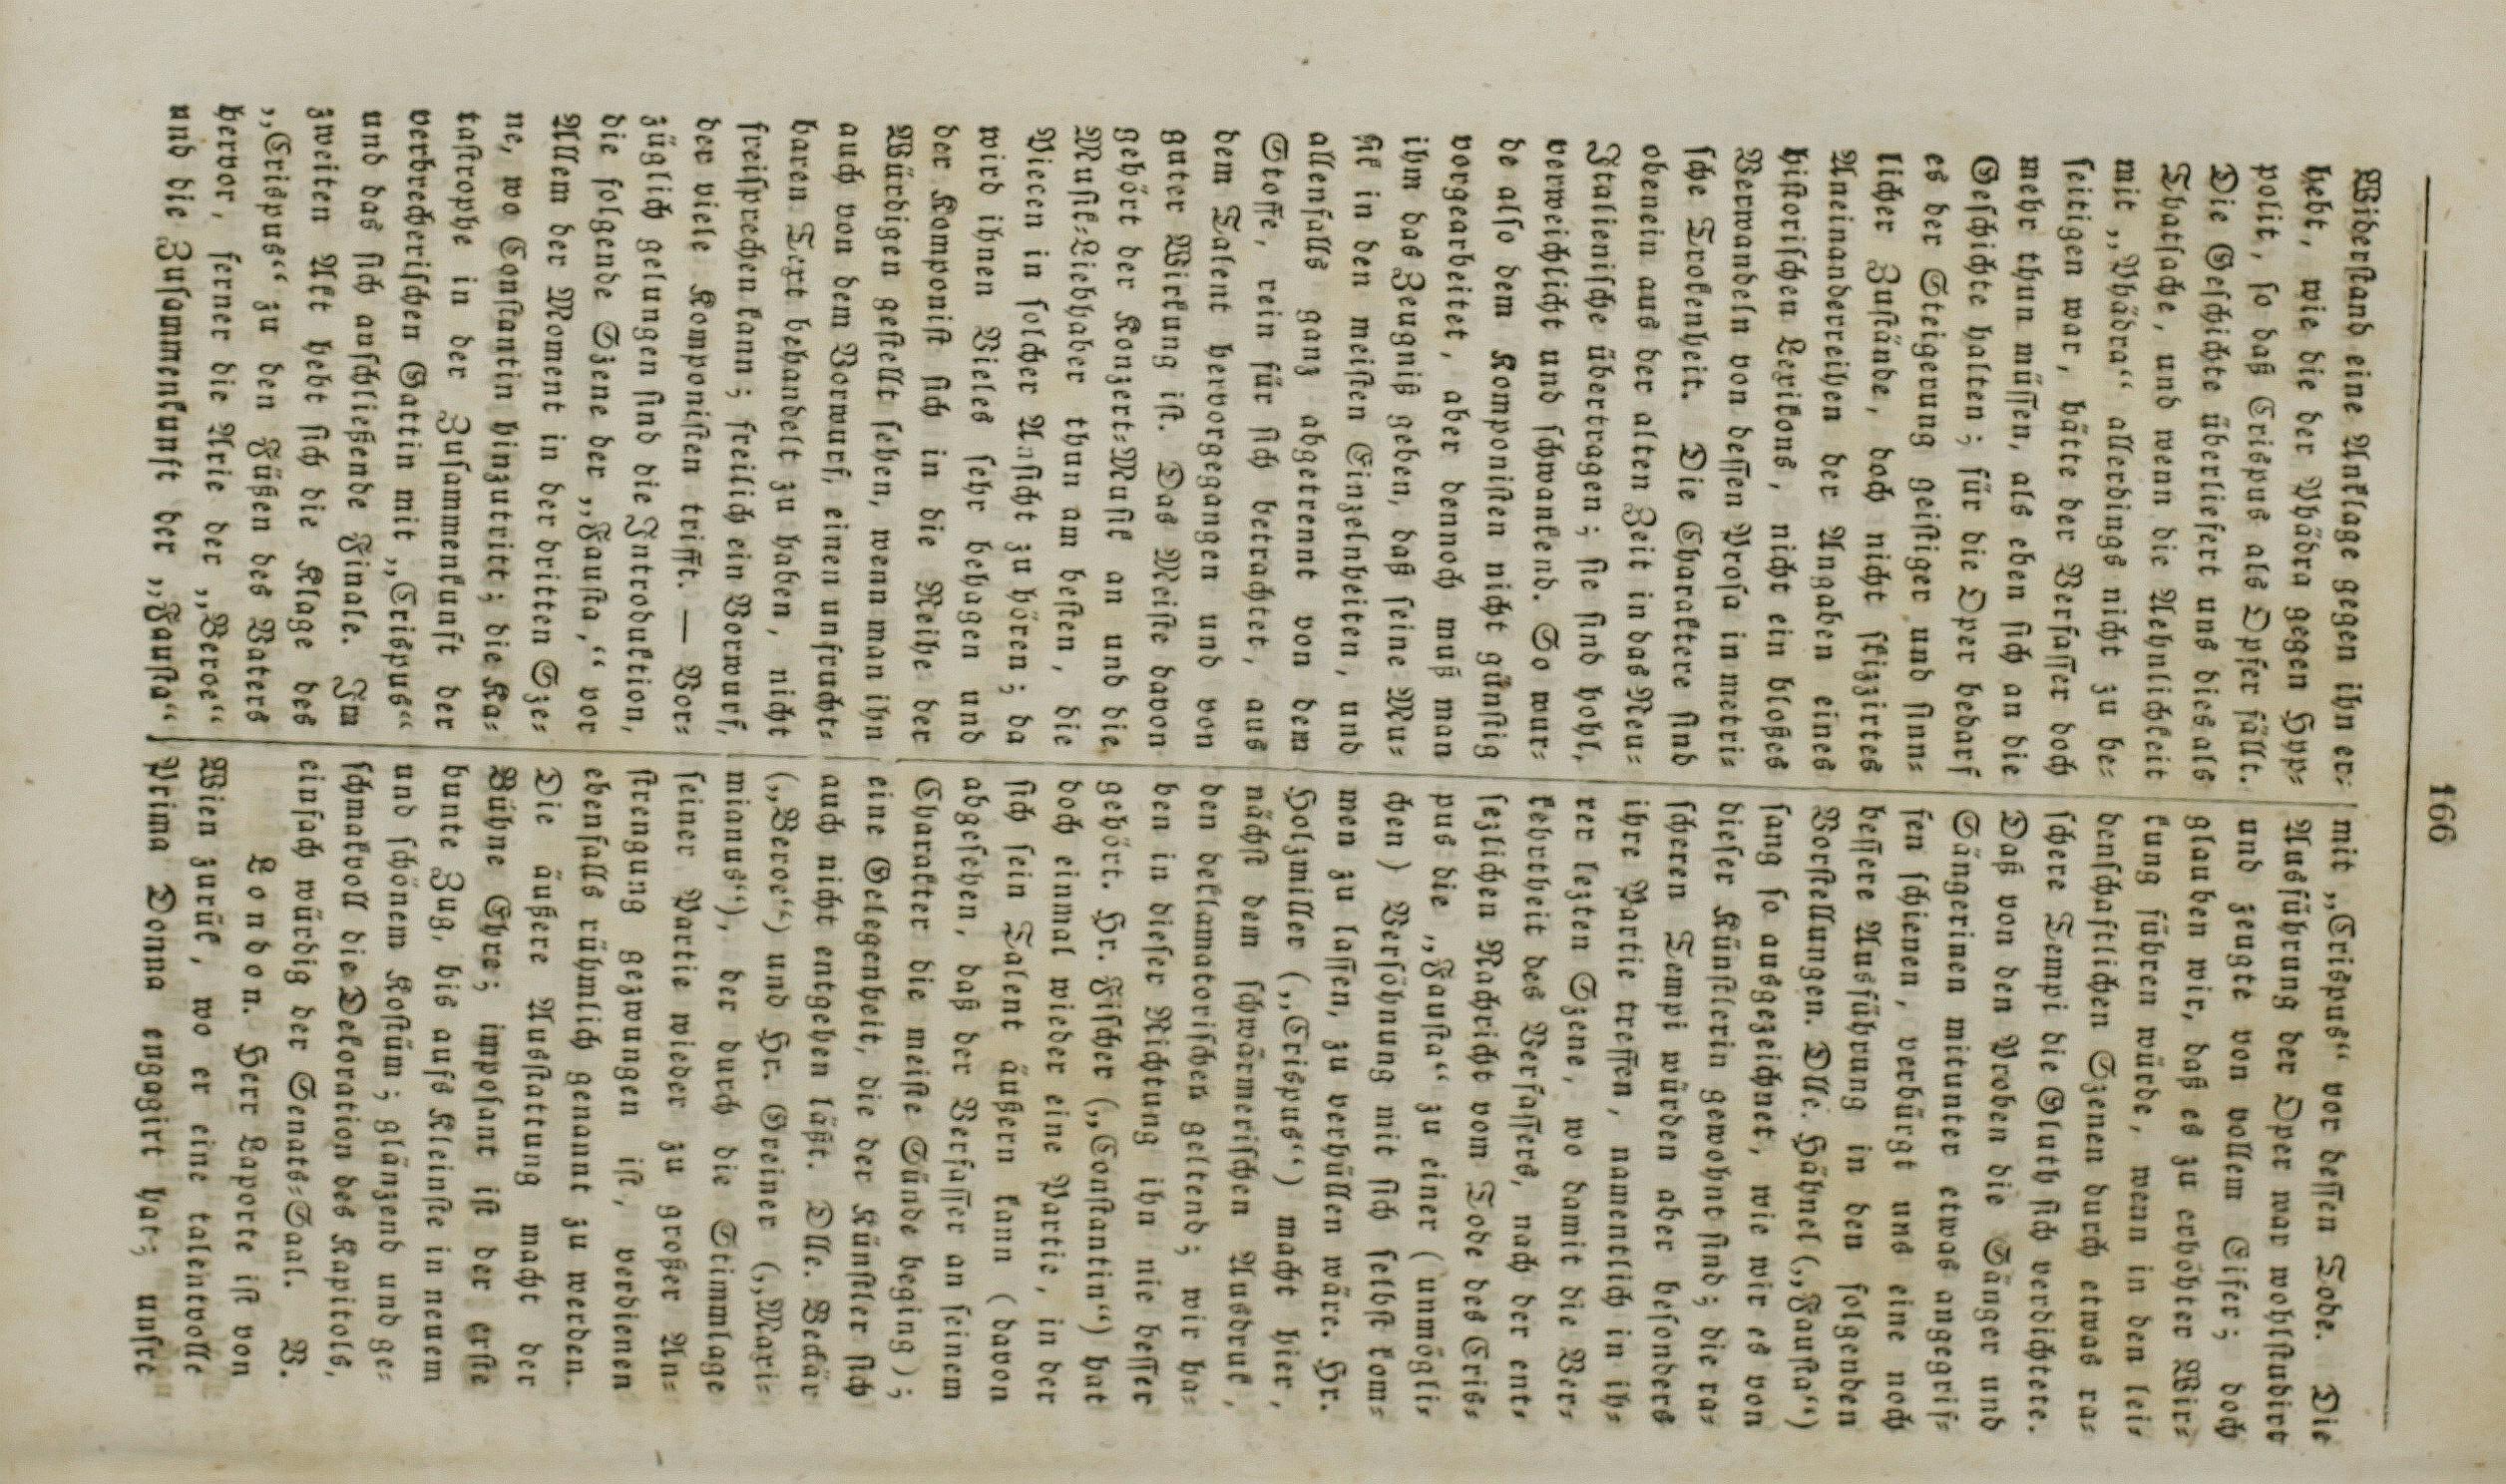 166
Widerſtand eine Anklage gegen ihn er-
hebt, wie die der Phädra gegen Hyp-
polit, ſo daß Crispus als Opfer fällt.
Die Geſchichte überliefert uns dies als
Thatſache, und wenn die Aehnlichkeit
mit „Phädra“ allerdings nicht zu be-
ſeitigen war, hätte der Verfaſſer doch
mehr thun müſſen, als eben ſich an die
Geſchichte halten; für die Oper bedarf
es der Steigerung geiſtiger und ſinn-
licher Zuſtände, doch nicht ſkizzirtes
Aneinanderreihen der Angaben eines
hiſtoriſchen Lexikons, nicht ein bloßes
Verwandeln von deſſen Proſa in metri-
ſche Trokenheit. Die Charaktere ſind
obenein aus der alten Zeit in das Neu-
Italieniſche übertragen; ſie ſind hohl,
verweichlicht und ſchwankend. So wur-
de alſo dem Komponiſten nicht günſtig
vorgearbeitet, aber dennoch muß man
ihm das Zeugniß geben, daß ſeine Mu-
ſik in den meiſten Einzelnheiten, und
allenfalls ganz abgetrennt von dem
Stoffe, rein für ſich betrachtet, aus
dem Talent hervorgegangen und von
guter Wirkung iſt. Das Meiſte davon
gehört der Konzert-Muſik an und die
Muſik-Liebhaber thun am beſten, die
Piecen in ſolcher Anſicht zu hören; da
wird ihnen Vieles ſehr behagen und
der Komponiſt ſich in die Reihe der
Würdigen geſtellt ſehen, wenn man ihn
auch von dem Vorwurf, einen unfrucht-
baren Text behandelt zu haben, nicht
freiſprechen kann; freilich ein Vorwurf,
der viele Komponiſten trifft. — Vor-
züglich gelungen ſind die Introduktion,
die folgende Szene der „Fauſta,“ vor
Allem der Moment in der dritten Sze-
ne, wo Conſtantin hinzutritt; die Ka-
taſtrophe in der Zuſammenkunft der
verbrecheriſchen Gattin mit „Crispus“
und das ſich anſchließende Finale. Im
zweiten Akt hebt ſich die Klage des
„Crispus“ zu den Füßen des Vaters
hervor, ferner die Arie der „Beroe“
und die Zuſammenkunft der „Fauſta“
mit „Crispus“ vor deſſen Tode. Die
Ausführung der Oper war wohlſtudirt
und zeugte von vollem Eifer; doch
glauben wir, daß es zu erhöhter Wir-
kung führen würde, wenn in den lei-
denſchaftlichen Szenen durch etwas ra-
ſchere Tempi die Gluth ſich verdichtete.
Daß von den Proben die Sänger und
Sängerinen mitunter etwas angegrif-
fen ſchienen, verbürgt uns eine noch
beſſere Ausführung in den folgenden
Vorſtellungen. Dlle. Hähnel („Fauſta“)
ſang ſo ausgezeichnet, wie wir es von
dieſer Künſtlerin gewohnt ſind; die ra-
ſcheren Tempi würden aber beſonders
ihre Partie treffen, namentlich in ih-
rer lezten Szene, wo damit die Ver-
kehrtheit des Verfaſſers, nach der ent-
ſezlichen Nachricht vom Tode des Cris-
pus die „Fauſta“ zu einer (unmögli-
chen) Verſöhnung mit ſich ſelbſt kom-
men zu laſſen, zu verhüllen wäre. Hr.
Holzmiller („Crispus“) macht hier,
nächſt dem ſchwärmeriſchen Ausdruk,
den deklamatoriſchen geltend; wir ha-
ben in dieſer Richtung ihn nie beſſer
gehört. Hr. Fiſcher („Conſtantin“) hat
doch einmal wieder eine Partie, in der
ſich ſein Talent äußern kann (davon
abgeſehen, daß der Verfaſſer an ſeinem
Charakter die meiſte Sünde beging);
eine Gelegenheit, die der Künſtler ſich
auch nicht entgehen läßt. Dlle. Beckär
(„Beroe“) und Hr. Greiner („Maxi-
mianus“), der durch die Stimmlage
ſeiner Partie wieder zu großer An-
ſtrengung gezwungen iſt, verdienen
ebenfalls rühmlich genannt zu werden.
Die äußere Ausſtattung macht der
Bühne Ehre; impoſant iſt der erſte
bunte Zug, bis aufs Kleinſte in neuem
und ſchönem Koſtüm; glänzend und ge-
ſchmakvoll die Dekoration des Kapitols,
einfach würdig der Senats-Saal. P.
London. Herr Laporte iſt von
Wien zurük, wo er eine talentvolle
Prima Donna engagirt hat; unſre